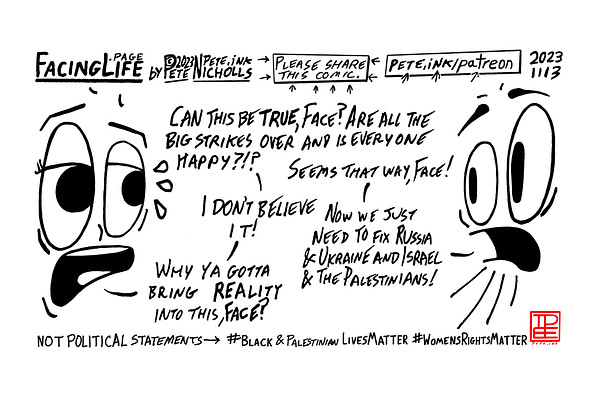 FACINGLIFE PAGE
BY ©2023 PETE.INK
PETE NICHOLLS
PLEASE SHARE
THIS COMIC.
PETE.INK/patreon
2023
1113
CAN THIS BE TRUE, FACE? ARE ALL THE
BIG STRIKES OVER AND IS EVERYONE
HAPPY?!?
SEEMS THAT WAY, FACE!
I DON'T BELIEVE
IT!
NOW WE JUST
NEED TO FIX RUSSIA
& UKRAINE AND ISRAEL
& THE PALESTINIANS!
WHY YA GOTTA
BRING REALITY
INTO THIS, FACE?
NOT POLITICAL STATEMENTS→ #BLACK & PALESTINIAN LIVESMATTER #WOMENSRIGHTSMATTER
PETE.INK